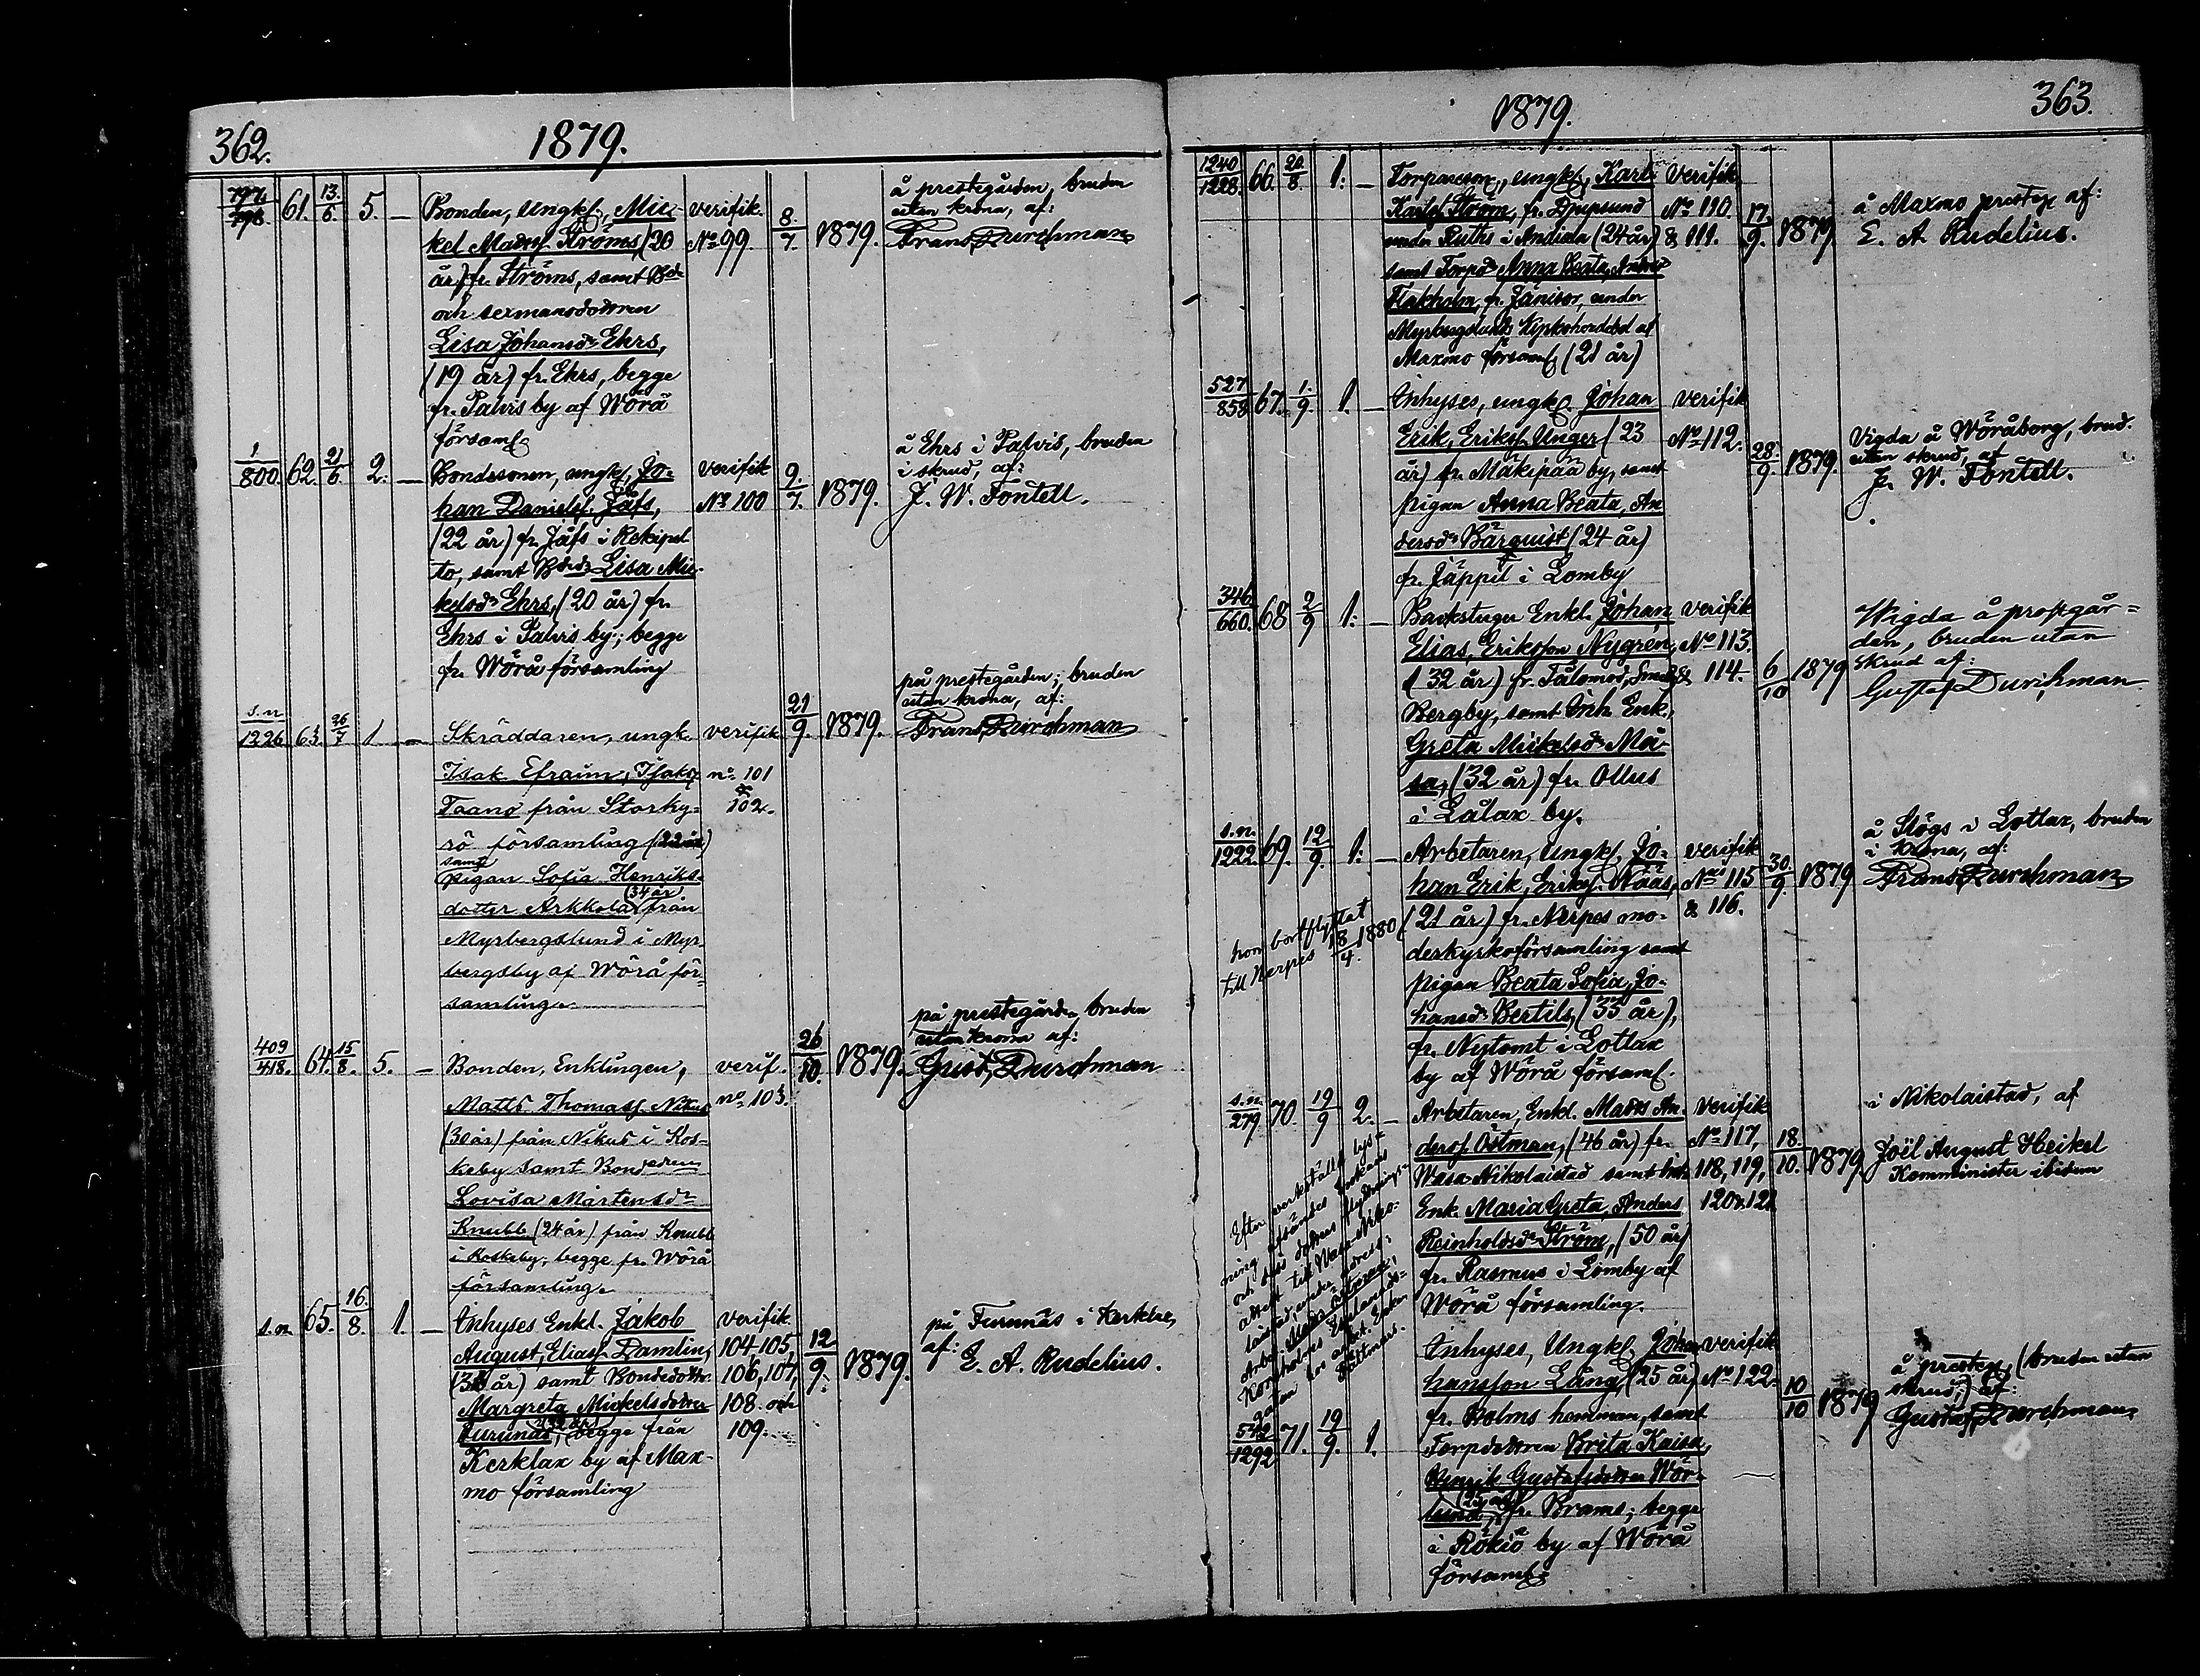 362.
1879.
797.
798.
61.
13.
6.
5.
Bonden, ungkl., Mic-
kel Madss. Ströms, (20
år) fr. Ströms, samt Bde
och sexmansdottren
Lisa Johansdr Ehrs,
(19 år) fr. Ehrs, begge
fr. Palvis by af Wörå
församl.
verifik.
No 99
8.
7.
1879.
å prestegården, bruden
utan krona, af:
Frans Durchman
1
800.
62.
21
6.
2.
Bondesonen, ungkl. Jo-
han Danielss. Jåfs,
(22 år) fr. Jåfs i Rekipel-
to, samt Bdedr Lisa Mic-
kelsdr Ehrs, (20 år) fr.
Ehrs i Palvis by; begge
fr. Wörå församling
verifik
No 100
9.
7.
1879.
å Ehrs i Palvis, bruden
i skrud, af:
J. W. Fontell.
s.n.
1226
63.
26
7
1
Skräddaren, ungk.
Isak Efraim, Isaks.
Taano från Storky-
rö församling (22 år)
samt
pigan Sofia Henriks-
dotter Arkkola (34 år) från
Myrbergslund i Myr-
bergsby af Wörå för-
samling.
verifik
no 101
&
102.
21
9.
1879.
på prestegården; bruden
utan krona, af:
Frans Durchman
409
418.
64.
15
8.
5.
Bonden, Enklingen,
Matts Thomass. Nikus
(30 år) från Nikus i Kos-
keby samt Bondedren
Lovisa Mårtensdr
Knubb (24 år) från Knubb
i Koskeby; begge fr. Wörå
församling.
verif.
no 103.
26
10.
1879.
på prestegården bruden
utan krona af:
Gust. Durchman
s.n.
65.
16.
8.
1.
Inhyses Enkl. Jakob
August, Eliass. Damlin,
år) samt Bondedottr.
Margreta Mickelsdotter
Furunäs, begge från
Kerklax by af Max-
mo församling
verifik.
104, 105,
106, 107,
108. och
109.
12
9.
1879.
på Furunäs i Kerklax,
af: E. A. Rudelius.
1879.
363.
1240
1228.
66.
20
8.
1.
Torpareson, ungkl., Karl
Karlss. Ström, fr. Djupsund
under Ruths i Andiala (24 år)
samt Torpdr Anna Beata, Andersdr
Flakholm, fr. Jänisor, under
Myrbergslunds Kyrkoherdebol af
Maxmo församl. (21 år)
verifik
No 110.
& 111.
17
9.
1879
å Maxmo presteg. af:
E. A. Rudelius.
527
858
67.
1.
9.
1.
Inhyses, ungkl. Johan
Erik, Erikss. Unger (23
år) fr. Mäkipää by, samt
pigan Anna Beata, An-
dersdr Bärquist (24 år)
fr. Jäppil i Lomby
verifik
No 112.
28.
9.
1879.
Vigda å Wöråborg, brud.
utan skrud, af
J. W. Fontell.
346
660.
68
2
9
1.
Backstuger Enkl. Johan
Elias, Eriksson Nygren,
(32 år) fr.
Bergby, samt Inh. Enk.
Greta Mickelsdr Må-
sa, (32 år) fr. Ollus
i Lålax by.
verifik
No 113.
& 114.
6
10
1879
Wigda å prostgår-
den, bruden utan
skrud af:
Gustaf Durchman
s.n.
1222.
69.
12
9.
1.
Arbetaren, Ungkl. Jo-
han Erik, Erikss. Nääs,
(21 år) fr. Nerpes mo-
derkyrkoförsamling samt
pigan Beata Sofia, Jo-
hansdr Bertils, (35 år),
fr. Nytomt i Lottax
by af Wörå församl.
verifik
Nos 115
& 116.
30
9.
1879
å Stögs i Lottax, bruden
i krona, af:
Frans Durchman
hon bortflyttat
till Nerpes 18/4. 1880
s.n.
279.
70.
19
9
2.
Arbetaren, Enkl. Madss An-
derss. Östman, (46 år) fr.
Wasa Nikolaistad samt Inh.
Enk. Maria Greta, Anders
Reinholdsdr Ström, (50 år)
fr. Rasmus i Lomby af
Wörå församling.
verifik
No 117,
118, 119,
120 o. 121
18.
10.
1879
i Nikolaistad, af
Joël August Heikel
Komminister ibidem
Efter verkstäld lys-
ning
och
attest till Wasa Niko-
laistad, under adress:
Arbet. Mads Östman,
Korsholms Esplanads-
gatan hos arbet. Enkan
542
1292
71.
19
9.
1.
Inhyses, Ungkl. Johan
hansson Lång, (25 år)
fr. Holms hemman, samt
Torpdottren Brita Kaisa,
Henrik Gustafsdotter Wör-
lund, fr. Brams; begge
i Rökiö by af Wörå
församl.
verifik
No 122.
10
10
1879
å presteg. (bruden utan
skrud,) af:
Gustaf Durchman